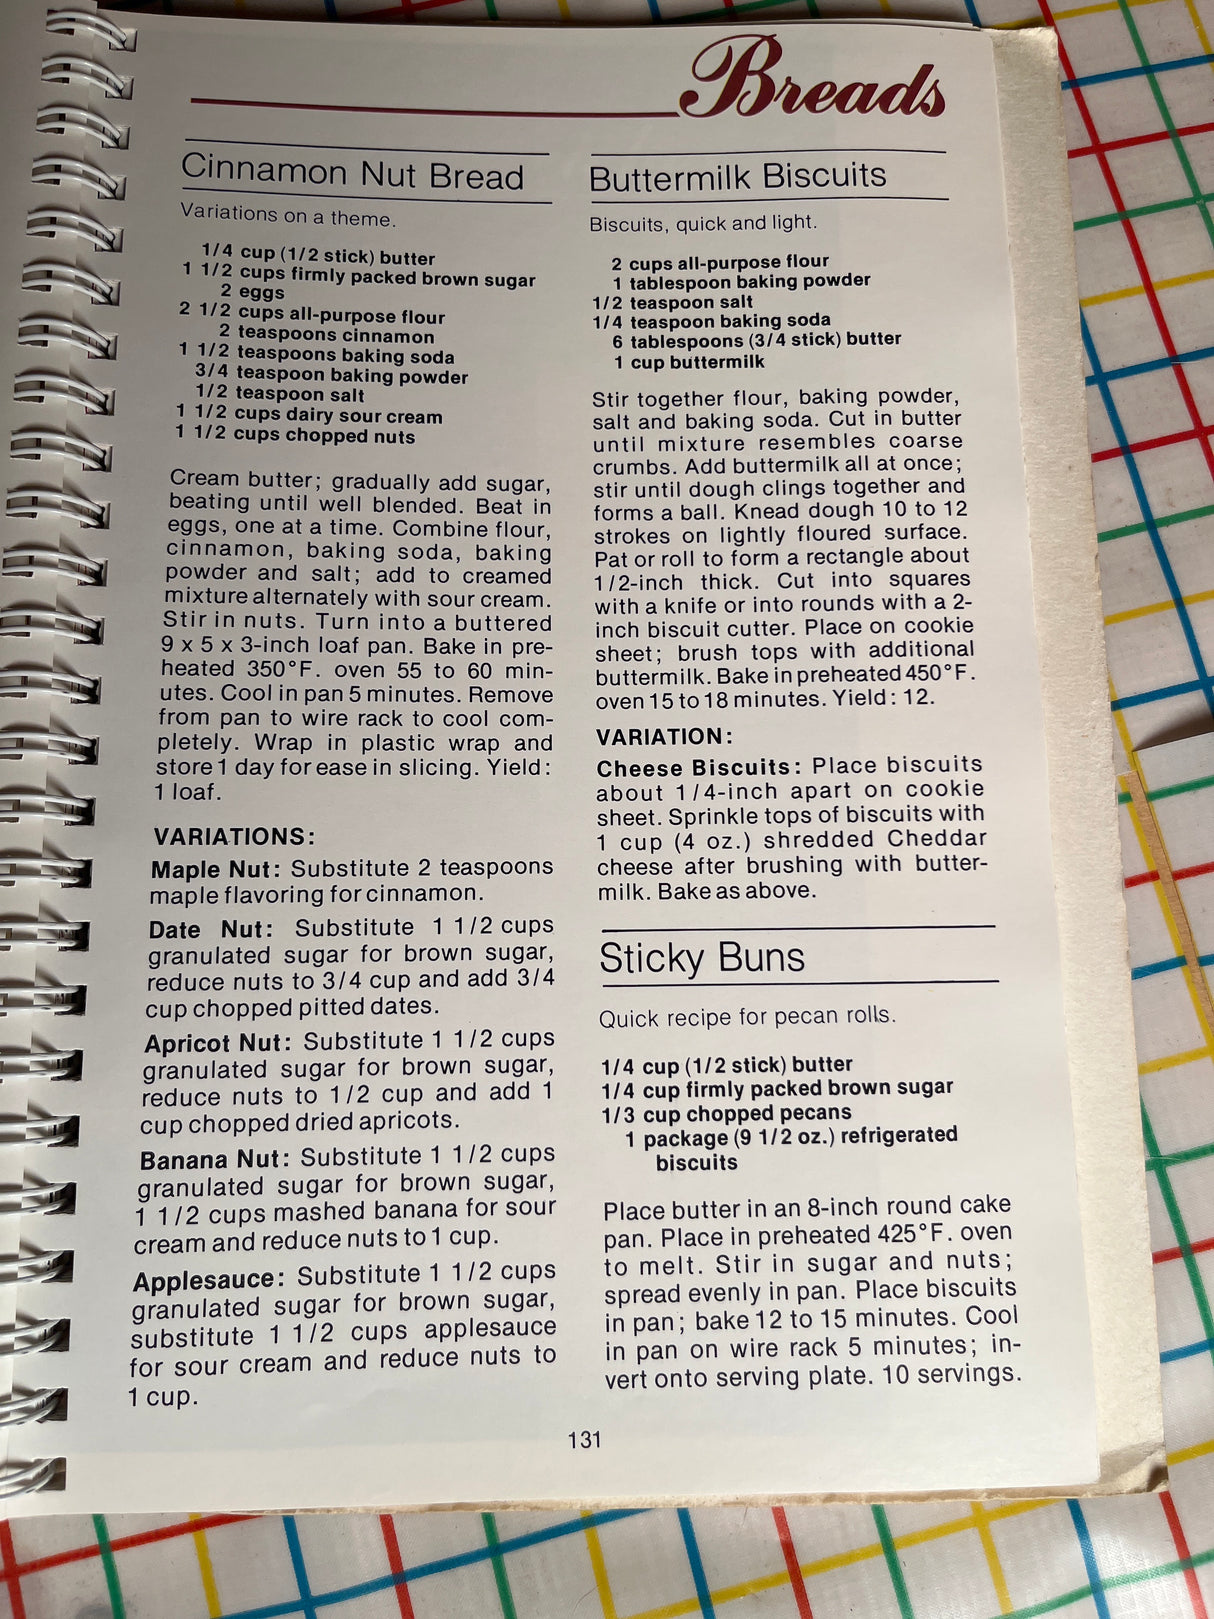 Breads
Cinnamon Nut Bread
Variations on a theme.
1/4 cup (1/2 stick) butter
1 1/2 cups firmly packed brown sugar
2 eggs
2 1/2 cups all-purpose flour
2 teaspoons cinnamon
1 1/2 teaspoons baking soda
3/4 teaspoon baking powder
1/2 teaspoon salt
1 1/2 cups dairy sour cream
1 1/2 cups chopped nuts
Cream butter; gradually add sugar,
beating until well blended. Beat in
eggs, one at a time. Combine flour,
cinnamon, baking soda, baking
powder and salt; add to creamed
mixture alternately with sour cream.
Stir in nuts. Turn into a buttered
9 x 5 x 3-inch loaf pan. Bake in pre-
heated 350°F. oven 55 to 60 min-
utes. Cool in pan 5 minutes. Remove
from pan to wire rack to cool com-
pletely. Wrap in plastic wrap and
store 1 day for ease in slicing. Yield:
1 loaf.
VARIATIONS:
Maple Nut: Substitute 2 teaspoons
maple flavoring for cinnamon.
Date Nut: Substitute 1 1/2 cups
granulated sugar for brown sugar,
reduce nuts to 3/4 cup and add 3/4
cup chopped pitted dates.
Apricot Nut: Substitute 1 1/2 cups
granulated sugar for brown sugar,
reduce nuts to 1/2 cup and add 1
cup chopped dried apricots.
Banana Nut: Substitute 1 1/2 cups
granulated sugar for brown sugar,
1 1/2 cups mashed banana for sour
cream and reduce nuts to 1 cup.
Applesauce: Substitute 1 1/2 cups
granulated sugar for brown sugar,
substitute 1 1/2 cups applesauce
for sour cream and reduce nuts to
1 cup.
Buttermilk Biscuits
Biscuits, quick and light.
2 cups all-purpose flour
1 tablespoon baking powder
1/2 teaspoon salt
1/4 teaspoon baking soda
6 tablespoons (3/4 stick) butter
1 cup buttermilk
Stir together flour, baking powder,
salt and baking soda. Cut in butter
until mixture resembles coarse
crumbs. Add buttermilk all at once;
stir until dough clings together and
forms a ball. Knead dough 10 to 12
strokes on lightly floured surface.
Pat or roll to form a rectangle about
1/2-inch thick. Cut into squares
with a knife or into rounds with a 2-
inch biscuit cutter. Place on cookie
sheet; brush tops with additional
buttermilk. Bake in preheated 450°F.
oven 15 to 18 minutes. Yield: 12.
VARIATION:
Cheese Biscuits: Place biscuits
about 1/4-inch apart on cookie
sheet. Sprinkle tops of biscuits with
1 cup (4 oz.) shredded Cheddar
cheese after brushing with butter-
milk. Bake as above.
Sticky Buns
Quick recipe for pecan rolls.
1/4 cup (1/2 stick) butter
1/4 cup firmly packed brown sugar
1/3 cup chopped pecans
1 package (9 1/2 oz.) refrigerated
biscuits
Place butter in an 8-inch round cake
pan. Place in preheated 425°F. oven
to melt. Stir in sugar and nuts;
spread evenly in pan. Place biscuits
in pan; bake 12 to 15 minutes. Cool
in pan on wire rack 5 minutes; in-
vert onto serving plate. 10 servings.
131